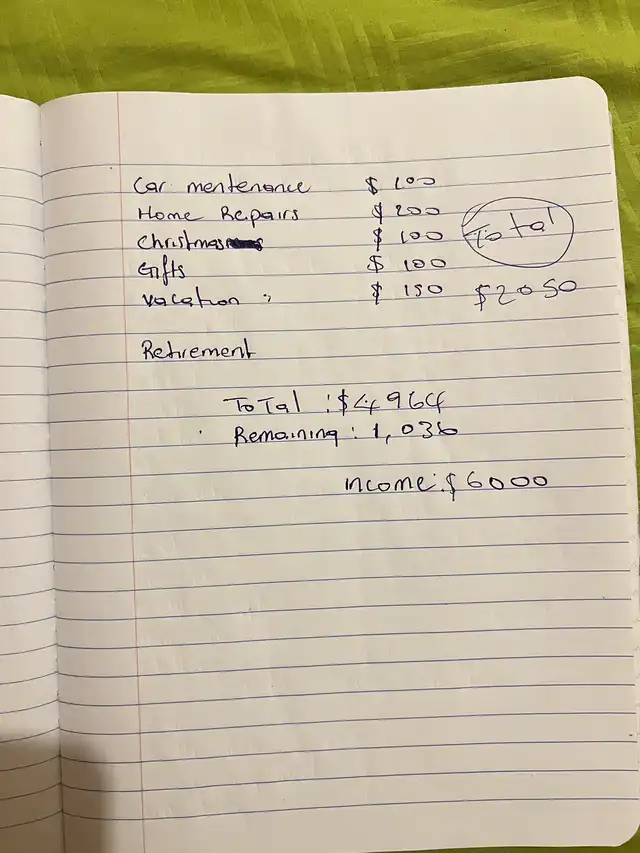 Car mentenance $ 100
Home Repairs $ 200
Christmas $ 100
Total
Gifts $ 100
Vacation : $ 150 $2050
Retirement
ToTal : $4964
Remaining : 1,036
income: $6000